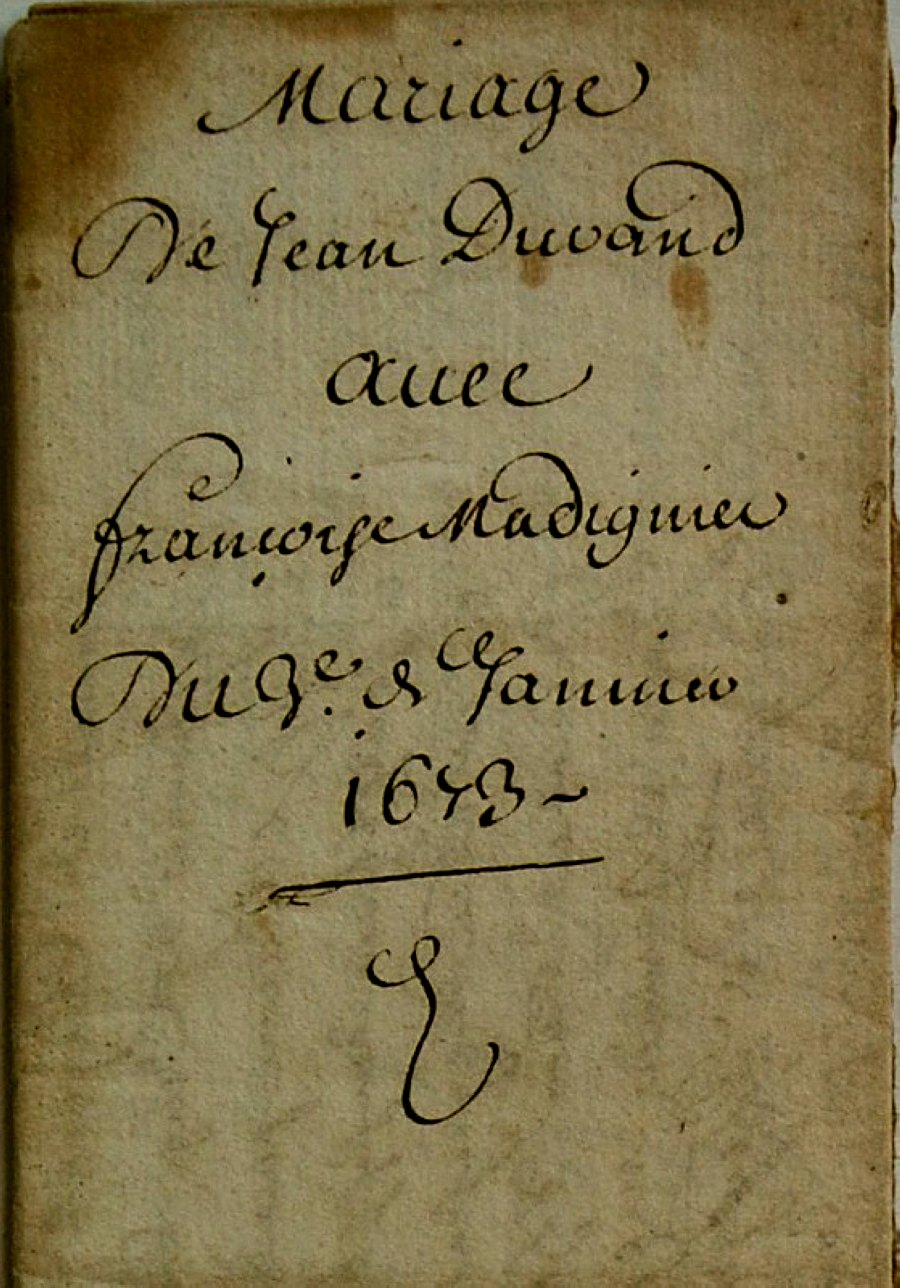 Mariage
De Jean Durand
auec
françoise Madignier
Du 3e. de Januier
1673